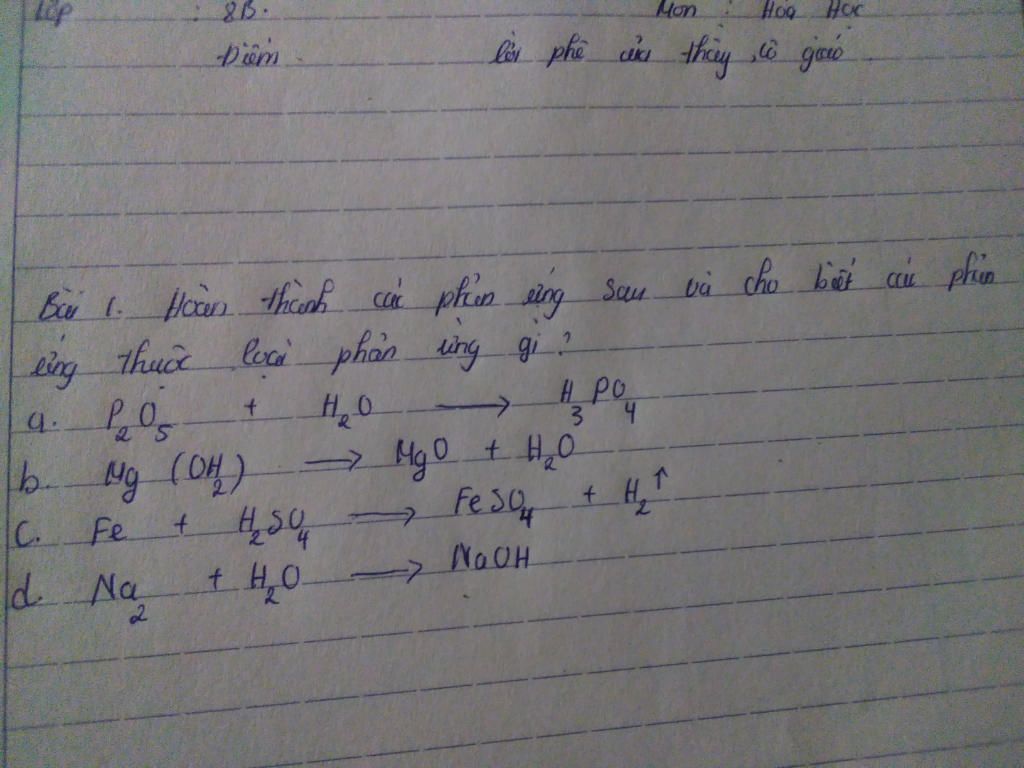 Lớp : 8B. Môn : Hóa Học
Điểm lời phê của thầy, cô giáo.
Bài 1. Hoàn thành các phản ứng sau và cho biết các phản
ứng thuộc loại phản ứng gì?
a. P₂O₅ + H₂O ⟶ H₃PO₄
b. Mg (OH₂) ⟶ MgO + H₂O
c. Fe + H₂SO₄ ⟶ FeSO₄ + H₂↑
d. Na₂ + H₂O ⟶ NaOH